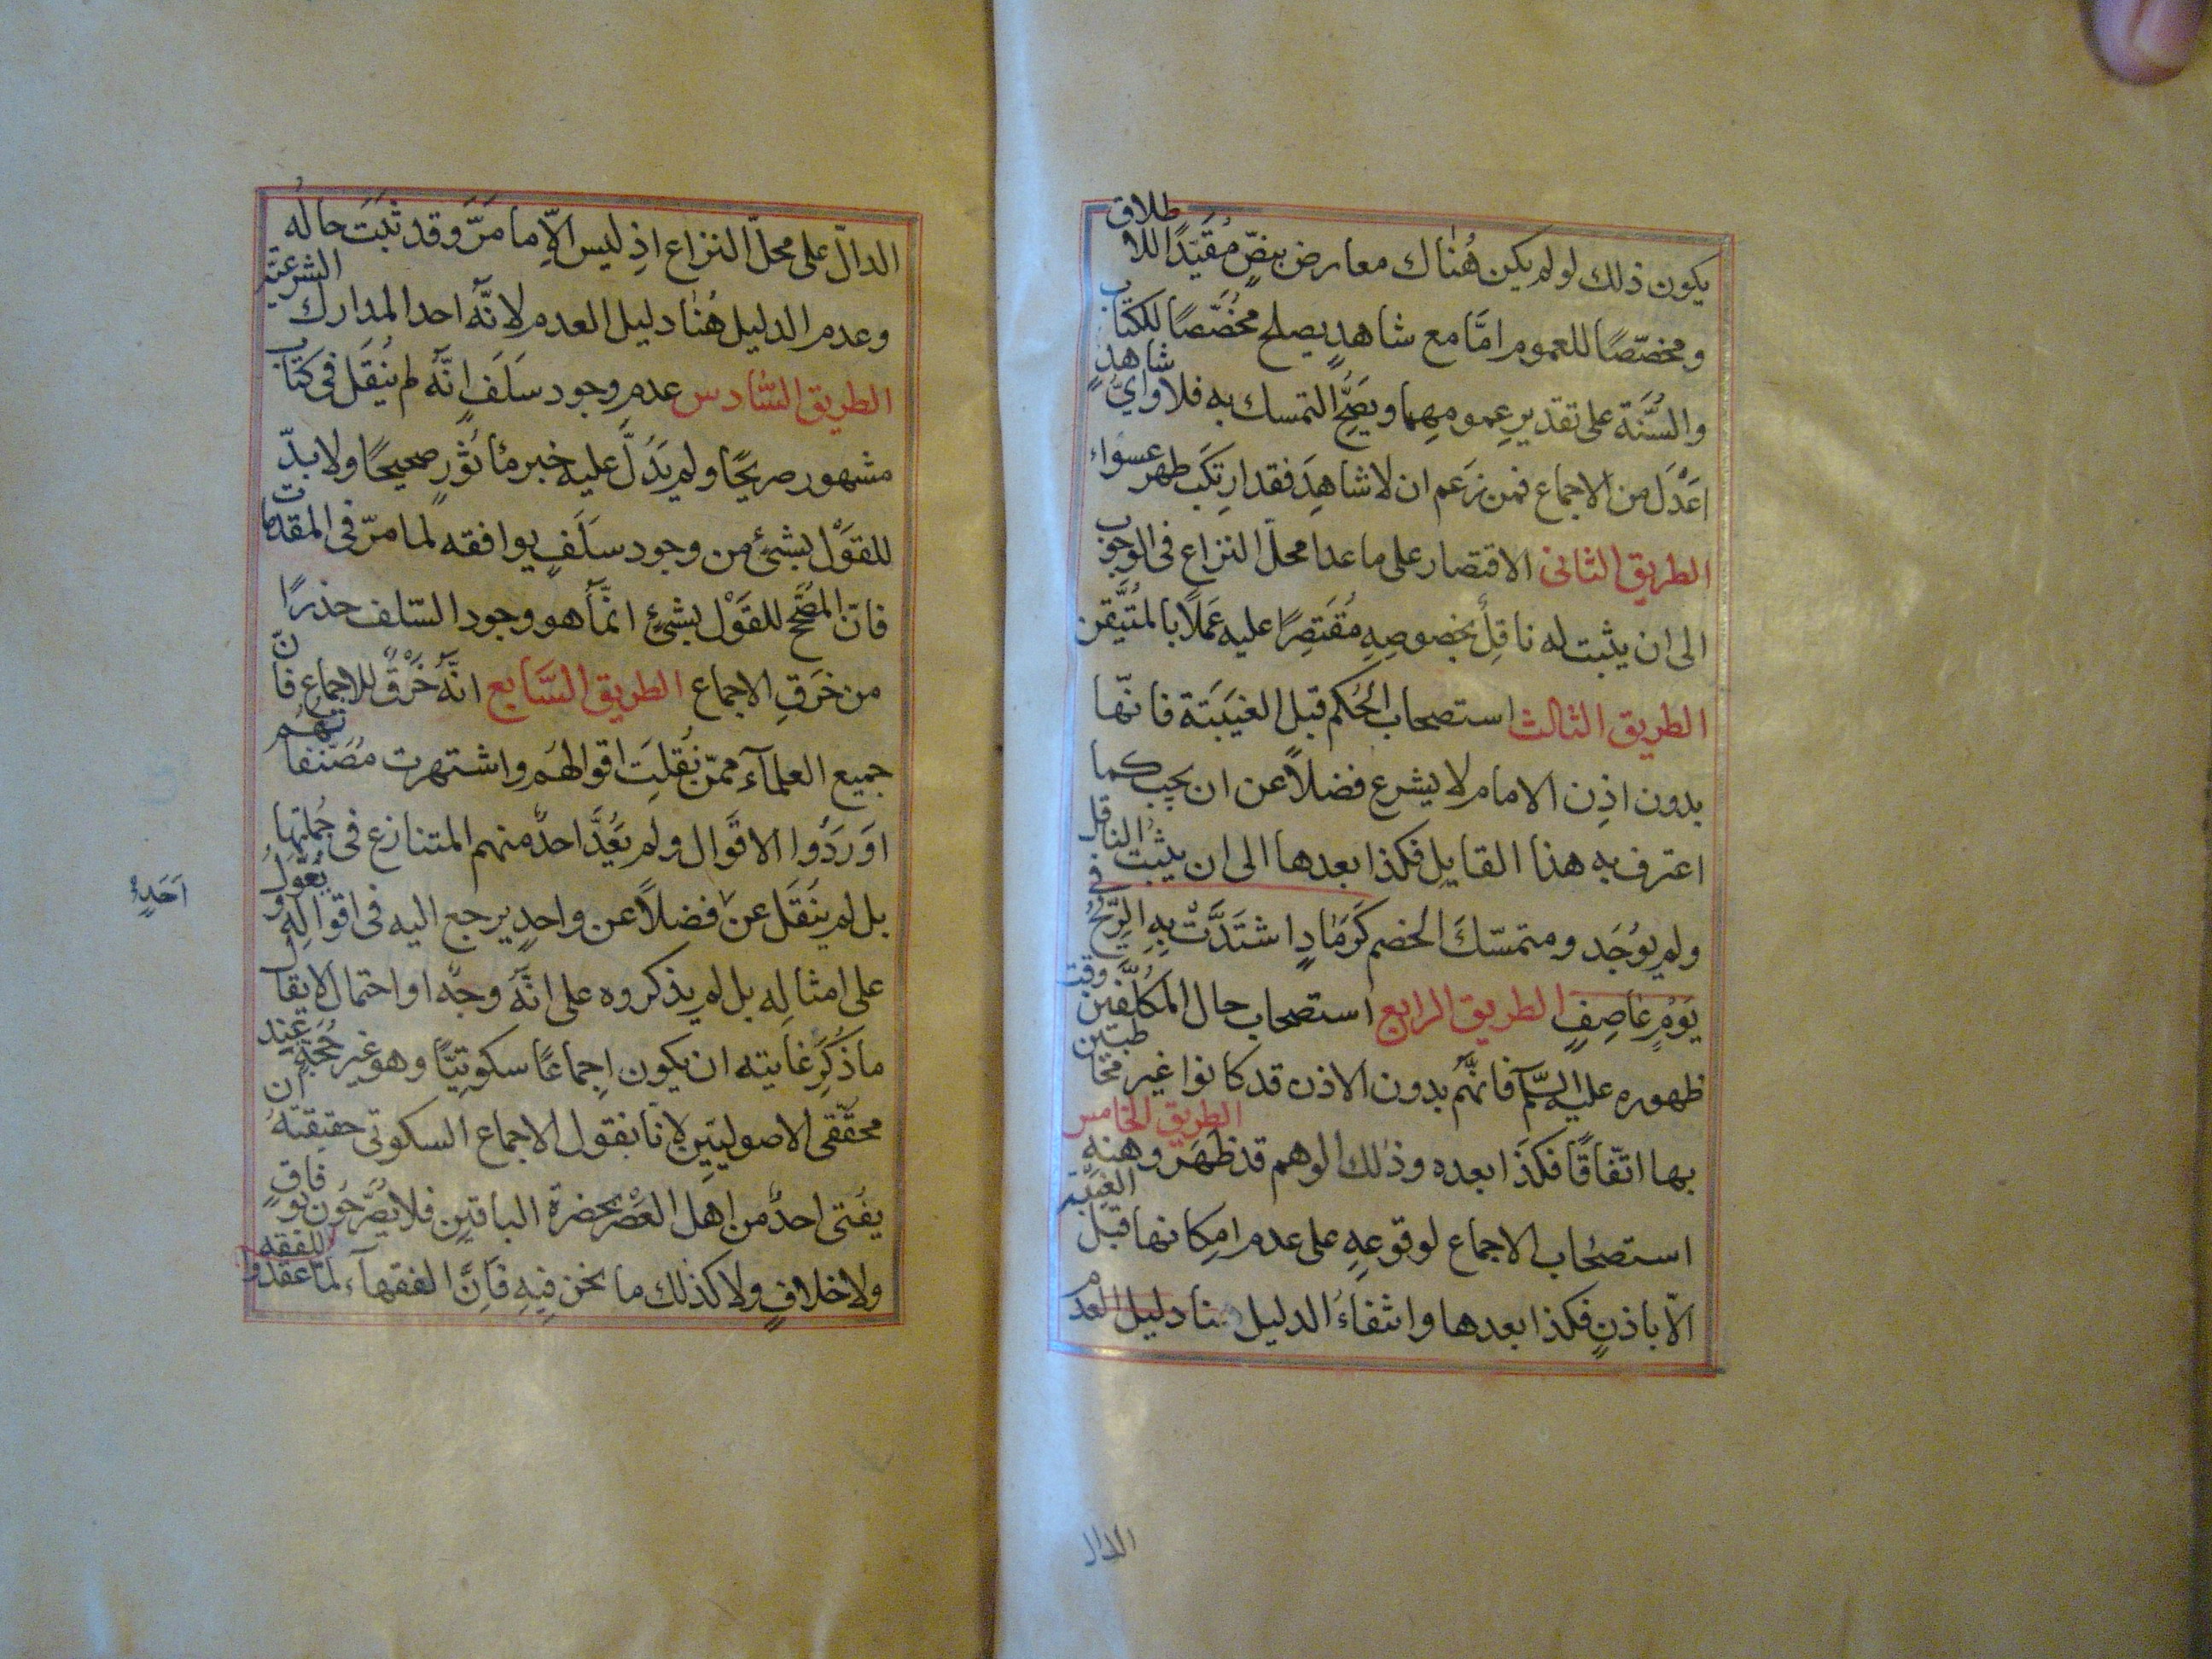 يكون ذلك لو لم يكن هُناك معارض بنصٍّ مُقَيّدًا للاطلاق
ومخصّصًا للعموم امَّا مع شاهدٍ يصلح مخُصَّصًا للكتاب
والسُّنَّة على تقدير عمومهِما ويَصِحُّ التمسك به فلا وايُّ شاهدٍ
اَعْدَل من الاجماع فمن زعم ان لا شاهِدَ فقد ارتكَبَ طهر عسواء
الطريق الثانى الاقتصار على ما عدا محلّ النزاع فى الوجوب
الى ان يثبت له ناقِلٌ بخصوصِهِ مُقتَصِرًا عليه عَمَلًا بالمُتَيَّقن
الطريق الثالث استصحاب الحُكم قبل الغَيبَتة فانّها
بدون اذِن الامام لا يشرع فضلاً عن ان يجب كما
اعترف به هذا القايل فكذا بعدها الى ان يثبت الناقل
ولم يوُجَد ومتمسّكَ الخصم كَرَمَادٍ اشتَدَّتْ بِهِ الرِّيحُ فى
يَوْمٍ عَاصِفٍ الطريق الرابع استصحاب حال المكَلَّفين وقت
ظهوره عليه السَّلم فانّهُم بدون الاذن قد كانوا غير مخاطبين
بها اتّفاقًا فكذَا بعده وذلك الوهم قد ظَهَرَ وهنه الطريق الخامس
استصحاب الاجماع لوقوعِهِ على عدم امِكانها قبل الغيبة
الّا باذنٍ فكذا بعدها وانتفاءُ الدليل هنا دليل العدم
الدال
الدالّ على محلّ النزاع اذِ ليس الاّ ما مَرَّ وقد ثَبَتَ حالُه
وعدم الدليل هُنا دليل العدم لانَّهُ احد المدارك الشرعيّة
الطريق السّادس عدم وجود سَلَفٍ انّهُ لم يُنقَل فى كتاب
مشهور صريحًا ولم يَدُلَّ عليه خبر مأثورٍ صحيحًا ولا بدّ
للقوْل بشئٍ من وجود سَلَفٍ يوافقه لما مرّ فى المقدمات
فانّ المُصَحِّح للقَوْل بشئٍ انمَّا هو وجود السّلف حذرًا
من خرَقِ الاجماع الطريق السَّابع انَّهُ خَرْقٌ للاجماع فانّ
جميع العلمآء ممّن نُقلِتَ اقوالهُم واشتهرت مُصَنّفاتهُم
اوَرَدُوا الاقَوال ولم يَعُدَّ احدٌ منهم المتنازع فى جُملتِها
بل لم ينُقَل عن فضلاً عن واحدٍ يرجع اليه فى اقوالِهِ ويُعَوّلُ
اَحَدٍ
على امثالِه بل لم يذكروه على انَّهُ وجهٌ او احتمال لا يقال
ما ذُكِرَ غايته ان يكون اِجماعًا سكوتِيًّا وهو غير حُجَّةٍ عند
محقّقى الاصوليّين لانّا نقول الاجماع السكوتى حقيقتهُ ان
يفُتى احدٌ من اهل العَصْر بحضرة الباقين فلا يُصَرّحُون بوفاقٍ
ولا خلافٍ ولا كذلك ما نحن فِيهِ فَاِنَّ الفقهآء لمّا عقدوا للفقه